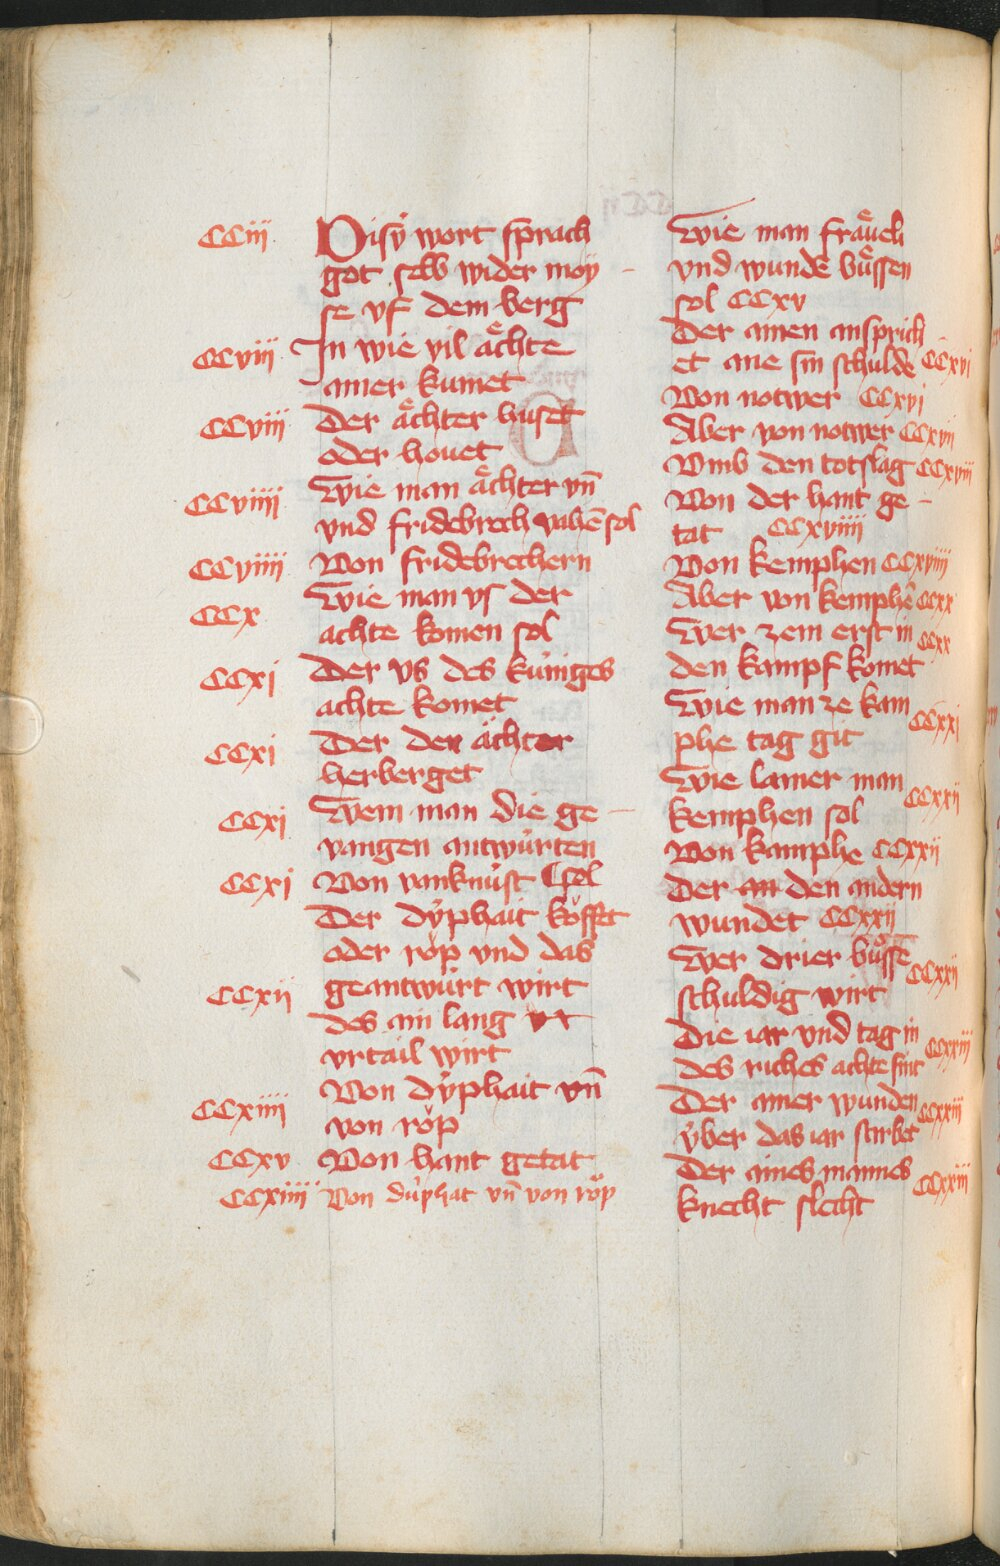 CCiii Disÿ wort sprach
got selb wider moÿ-
se vf dem berg
CCviii In wie vil aͤchte
ainer kumet
CCviii Der aͤchter huset
oder houet
CCviiii Wie man aͤchter vn̄
vnd fridebrech vahē sol
CCviiii Von fridebrechern
CCx Wie man vs der
achte komen sol
CCxi Der vs des kúniges
achte komet
CCxi Der den aͤchter
herberget
CCxi Wem man die ge-
vangen antwúrten
CCxi Von vanknúst sol
Der dÿphait koͮffet
oder roͮp vnd das
CCxii geantwúrt wirt
des ain lang
vrtail wirt
CCxiiii Von dÿphait vn̄
von roͮp
CCxv Von hant getat
CCxiiii Von dúphat vn̄ von roͮp
Wie man fraͤuel
vnd wundē buͤssen
sol CCxv
Der ainen ansprich
et ane sin schulde CCxvi
Von notwer CCxvi
Aber von notwer CCxvii
Vmb den totslag CCxviii
Von der hant ge-
tat CCxviiii
Von kemphen CCxviiii
Aber von kemphē CCxx
Wer zem erst in CCxx
den kampf komet
Wie man ze kam CCxxi
phe tag git
Wie lamer man CCxxii
kemphen sol
Von kamphe CCxxii
Der an den andern
wundet CCxxii
Wer drier buͤsse CCxxii
schuldig wirt
Die iar vnd tag in CCxxiii
des riches achte sint
Der ainer wunden CCxxiii
ÿber das iar stirbet
Der aines mannes CCxxiii
knecht slecht